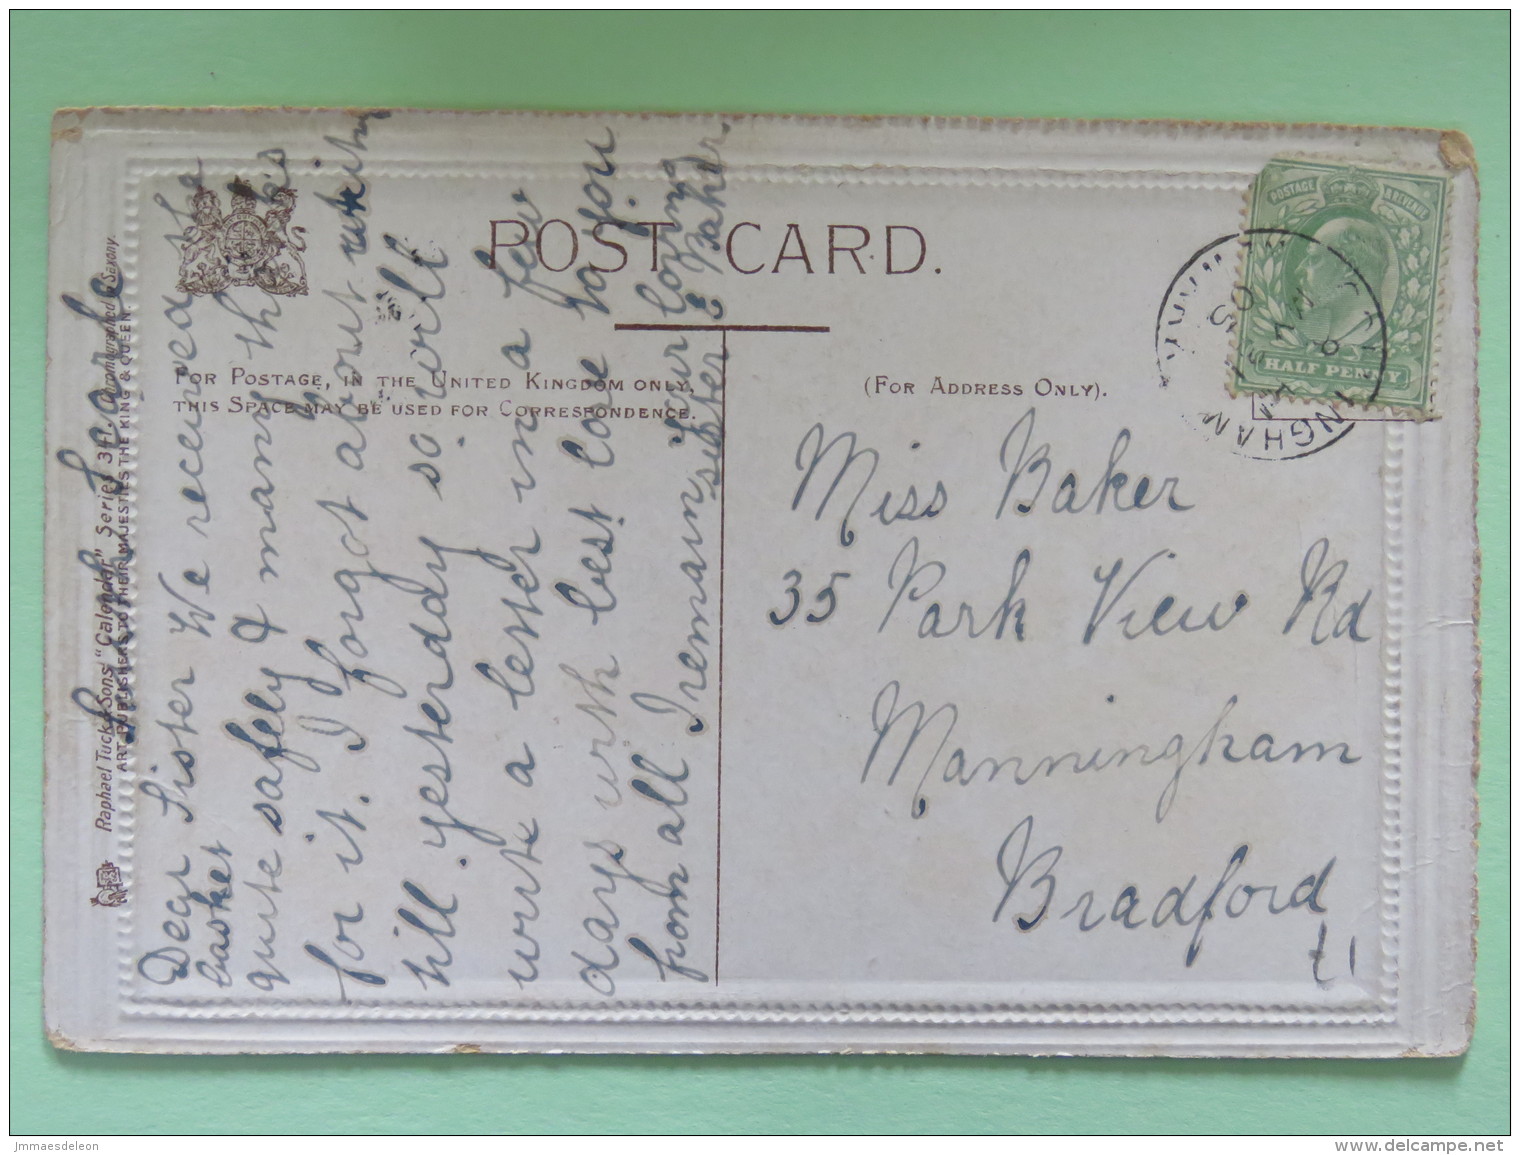 POST CARD.
FOR POSTAGE, IN THE UNITED KINGDOM ONLY,
THIS SPACE MAY BE USED FOR CORRESPONDENCE.
(FOR ADDRESS ONLY).
POSTAGE & REVENUE
HALF PENNY
Raphael Tuck & Sons' "Calendar" Series 341. Chromographed in Saxony.
ART PUBLISHERS TO THEIR MAJESTIES THE KING & QUEEN.
Dear Sister We received the
basket
quite safely & many thanks
for it. I forgot about writing
till yesterday so will
write a letter in a few
days with best love to you
from all I remain your loving
sister Baker.
Miss Baker
35 Park View Rd
Manningham
Bradford
Jmmaesdeleon
www.delcampe.net